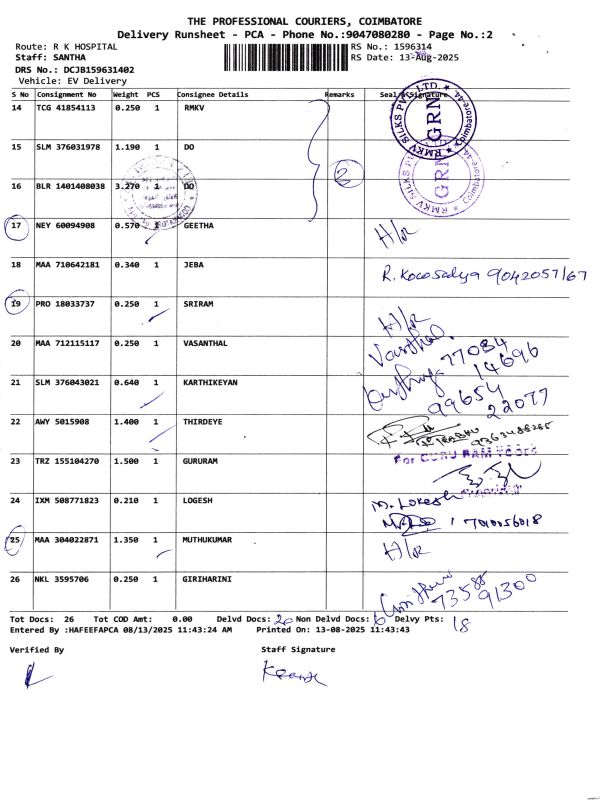 THE PROFESSIONAL COURIERS, COIMBATORE
Delivery Runsheet - PCA - Phone No.:9047080280 - Page No.:2
Route: R K HOSPITAL RS No.: 1596314
Staff: SANTHA RS Date: 13-Aug-2025
DRS No.: DCJB159631402
Vehicle: EV Delivery
S No Consignment No Weight PCS Consignee Details Remarks Seal & Signature
14 TCG 41854113 0.250 1 RMKV
RMKV SILKS PVT. LTD. GRN Coimbatore-44
15 SLM 376031978 1.190 1 DO
2
RMKV SILKS PVT. LTD. GRN Coimbatore-44
16 BLR 1401408038 3.270 1 DO
17 NEY 60094908 0.570 1 GEETHA
18 MAA 710642181 0.340 1 JEBA 9042057167
19 PRO 18033737 0.250 1 SRIRAM
20 MAA 712115117 0.250 1 VASANTHAL Vasanthal 77084 14696
21 SLM 376043021 0.640 1 KARTHIKEYAN 99654 22077
22 AWY 5015908 1.400 1 THIRDEYE
23 TRZ 155104270 1.500 1 GURURAM For GURU RAM FOODS
24 IXM 508771823 0.210 1 LOGESH M. Lokesh
25 MAA 304022871 1.350 1 MUTHUKUMAR
26 NKL 3595706 0.250 1 GIRIHARINI 73588 91300
Tot Docs: 26 Tot COD Amt: 0.00 Delvd Docs: 20 Non Delvd Docs: 6 Delvy Pts: 18
Entered By :HAFEEFAPCA 08/13/2025 11:43:24 AM Printed On: 13-08-2025 11:43:43
Verified By Staff Signature